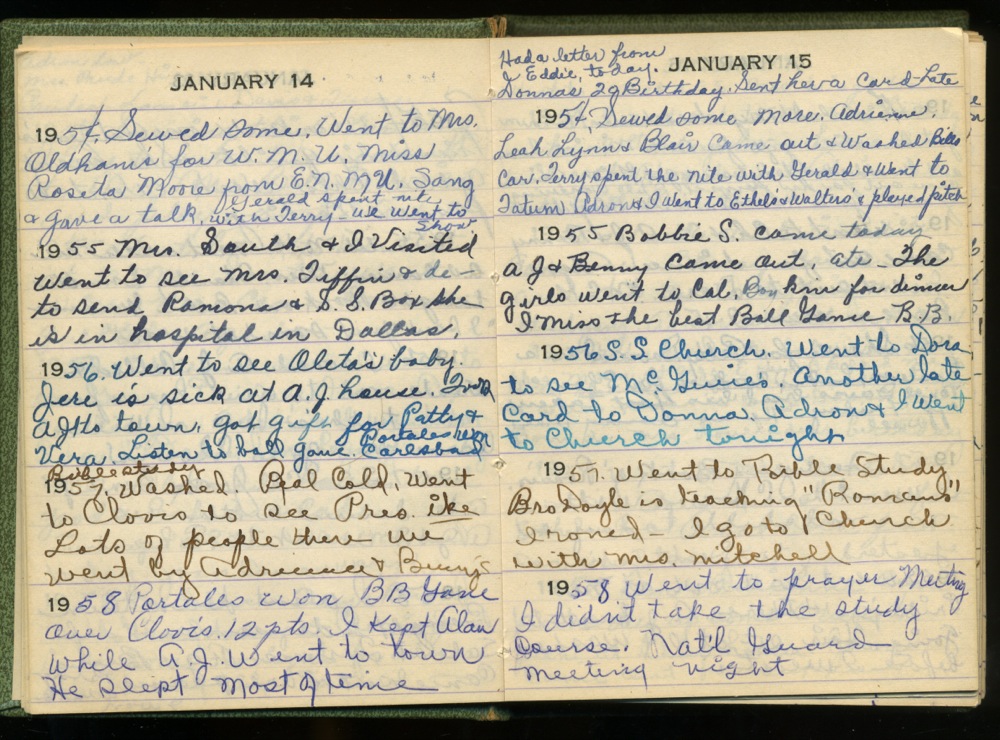 JANUARY 14
1954. Sewed some. Went to Mrs.
Oldham's for W.M.U. Miss
Roseta Moore from E.N.M.U. Sang
& gave a talk. Gerald spent nite
with Terry - we went to
Show
1955 Mrs. South & I Visited
Went to see Mrs. Tiffin & de-
to send Ramona & S.S. Box she
is in hospital in Dallas.
1956. Went to see Oleta's baby.
Jere is sick at A.J. house. Took
AJ to town. got gift for Patty &
Vera. Listen to ball game. Portales won
Carlsbad
Bible study
1957. Washed. Real Cold. Went
to Clovis to see Pres. Ike
Lots of people there we
went by Adrienne & Benny's
1958 Portales won BB Game
over Clovis. 12 pts. I Kept Alan
while A.J. Went to town
He slept most of time
Had a letter from
Eddie, to-day.
JANUARY 15
Donnas 29 Birthday. Sent her a Card-Late
1954. Sewed some more. Adrienne.
Leah Lynn & Blair Came out & Washed Bills
Car. Terry spent the nite with Gerald & Went to
Tatum Adron & I Went to Ethel's & Walter's & played pitch
1955 Bobbie S. came today
A J & Benny Came out, ate - The
girls went to Cal. kin for dinner
I miss the best Ball Game B.B.
1956 S.S. Church. Went to Dora
to see McGuires. Another late
Card to Donna. Adron & I Went
to Church tonight
1957. Went to Bible Study
Bro Doyle is teaching "Romans"
I roned - I go to Church
with Mrs. Mitchell
1958 Went to prayer Meeting
I didn't take the study
Course. Nat'l Guard
meeting night